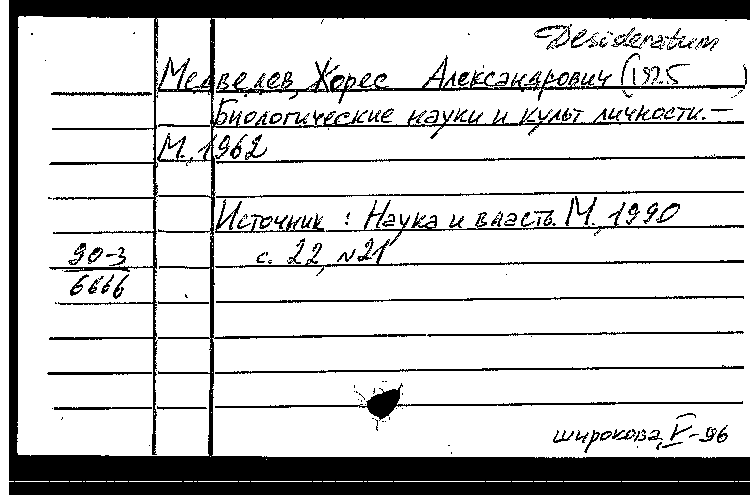 Desideratum
Медведев, Жорес Александрович (1925 )
Биологические науки и культ личности. –
М., 1962
Источник : Наука и власть. М., 1990
с. 22, №21
90-3
6666
широкова, V-96